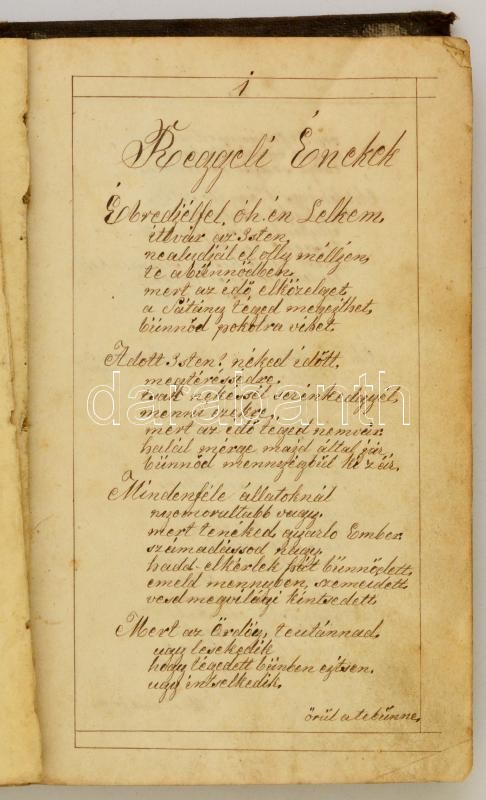 1
Reggeli Énekek
Ébredjélfel, óh én Lelkem,
itt vár az Isten,
ne aludjál el olly méllyen,
te a bünnödben,
mert az édő elközelget,
a Sátány téged megejthet,
bünnöd pokolra vihet.
Adott Isten néked időtt
megtéressedre,
csak
mennyekbe,
mert az édő téged nemvár
halál mérge majd által jár,
bünnöd mennyégbül ki zár.
Mindenféle állatoknál
nyomorultabb vagy,
mert tenéked gyarlo Ember
számadássod nagy,
hadd-elkérlek hát bünnödett,
emeld mennyben, szemeidett
vesd meg világi kintsedett.
Mert az Ördög, teutánnad
ugy leselkedik
hogy tégedett bünben ejtsen,
ugy intselkedik.
örül a te bünne,
darabanth